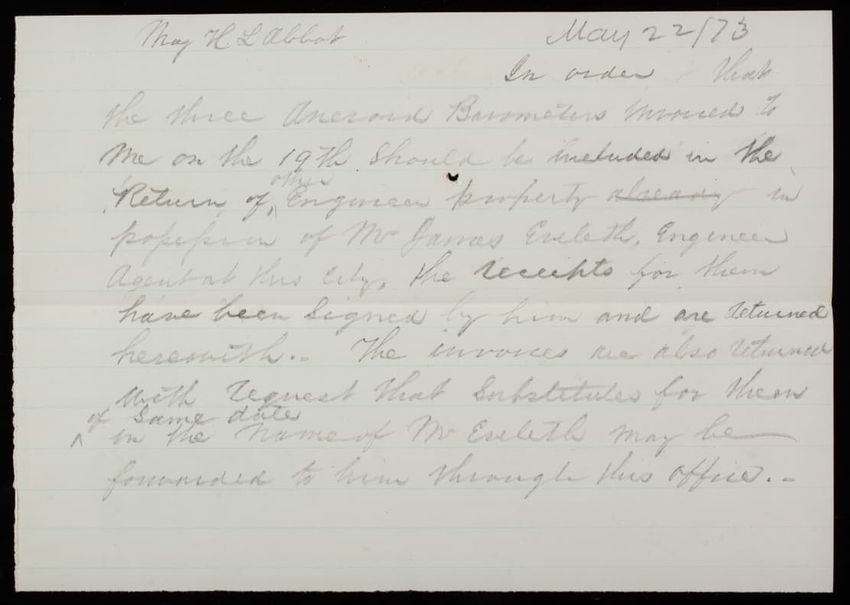 Maj H. L Abbot May 22/73
In order that
the three Aneroid Barometers invoiced to
me on the 19th should be included in the
Return of other Engineer property already in
possession of Mr James Eveleth, Engineer
Agent at this City, the receipts for them
have been signed by him and are returned
herewith.- The invoices are also returned
with request that Substitutes for them
of same date
in the name of Mr Eveleth may be
forwarded to him through this office.-